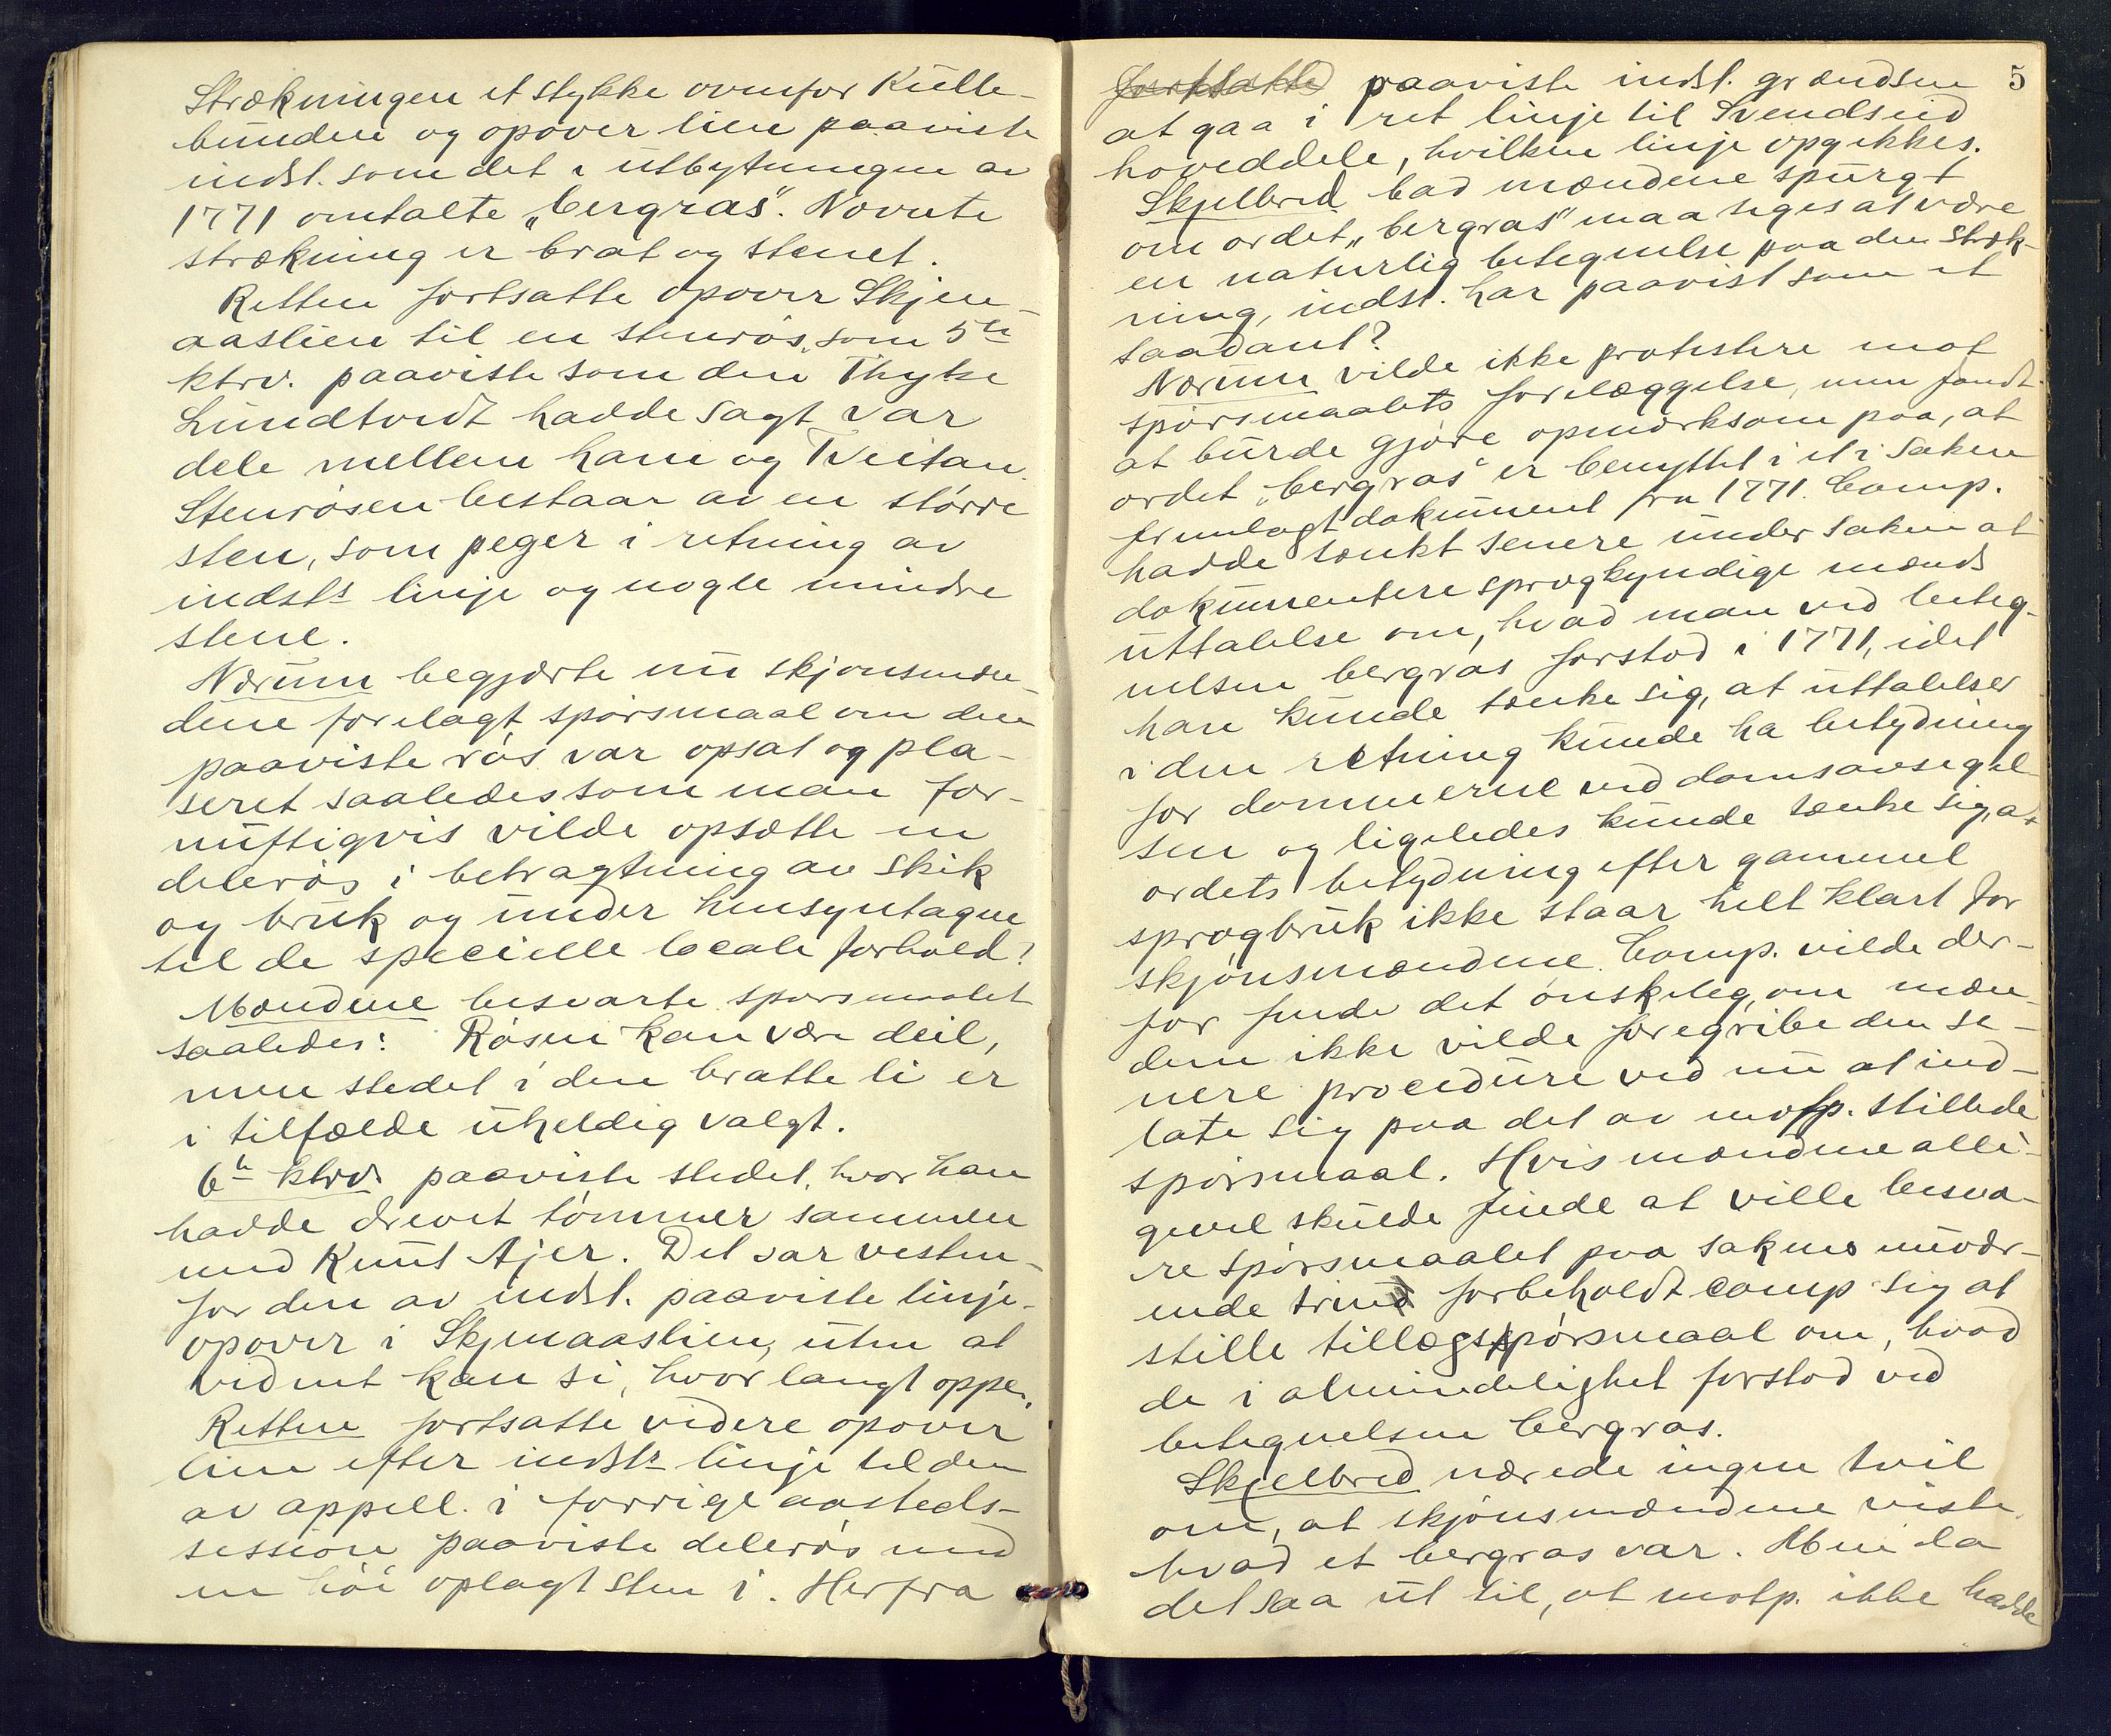 Strækningen et stykke ovenfor Kulle-
bunden og opover lien paaviste
indst. som det i utbytningen av
1771 omtalte „bergras". Nævnte
strækning er brat og stenet.
Retten fortsatte opover Skjen-
aaslien til en stenrøs, som 5te
ktrv. paaviste som den Thykse
Lundtvedt hadde sagt var
dele mellem ham og Tveitan.
Stenrøsen bestaar av en større
sten, som peger i retning av
indsts linje og nogle mindre
stene.
Nærum begjærte nu skjønsmæn-
dene forelagt spørsmaal om den
paaviste røs var opsat og pla-
seret saaledes som man for-
nuftigvis vilde opsætte en
delerøs i betragtning av skik
og bruk og under hensyntagne
til de specielle locale forhold?
Mændene besvarte spørsmaalet
saaledes: Røsen kan være deil,
men stedet i den bratte li er
i tilfælde uheldig valgt.
6te ktrv. paaviste stedet, hvor han
hadde drevet tømmer sammen
med Knut Ajer. Det var vesten-
for den av indst. paaviste linje
opover i Skjenaaslien, uten at
vidnet kan si, hvor langt oppe.
Retten fortsatte videre opover
lien efter indsts linje til den
av appell. i forrige aasteds-
session paaviste delerøs med
en høi oplagt sten i. Herfra
5
fortsatte paaviste indst. grændsen
at gaa i ret linje til Svendseid
hoveddele, hvilken linje opgikkes.
Skjelbred bad mændene spurgt
om ordet „bergras" maa siges at være
en naturlig betegnelse paa den stræk-
ning, indst. har paavist som et
saadant?
Nærum vilde ikke protestere mot
spørsmaalets forelæggelse, men fandt
at burde gjøre opmerksom paa, at
ordet „bergras" er benyttet i et i saken
fremlagt dokument fra 1771. Comp.
hadde tænkt senere under saken at
dokumentere sprogkyndige mænds
uttalelse om, hvad man ved beteg-
nelsen bergras forstod i 1771, idet
han kunde tænke sig, at uttalelser
i den retning kunde ha betydning
for dommerne ved domsavsigel-
sen og ligeledes kunde tænke sig, at
ordets betydning efter gammel
sprogbruk ikke staar helt klart for
skjønsmændene. Comp. vilde der-
for finde det ønskelig, om mæn-
dene ikke vilde foregribe den se-
nere procedure ved nu at ind-
late sig paa det av motp. stillede
spørsmaal. Hvis mændene alli-
gevel skulde finde at ville besva-
re spørsmaalet paa sakens nuvær-
ende trin forbeholdt comp sig at
stille tillægsspørsmaal om, hvad
de i almindelighet forstod ved
betegnelsen bergras.
Skjelbred nærede ingen tvil
om, at skjønsmændene viste,
hvad et bergras var. Men da
det saa ut til, at motp. ikke hadde